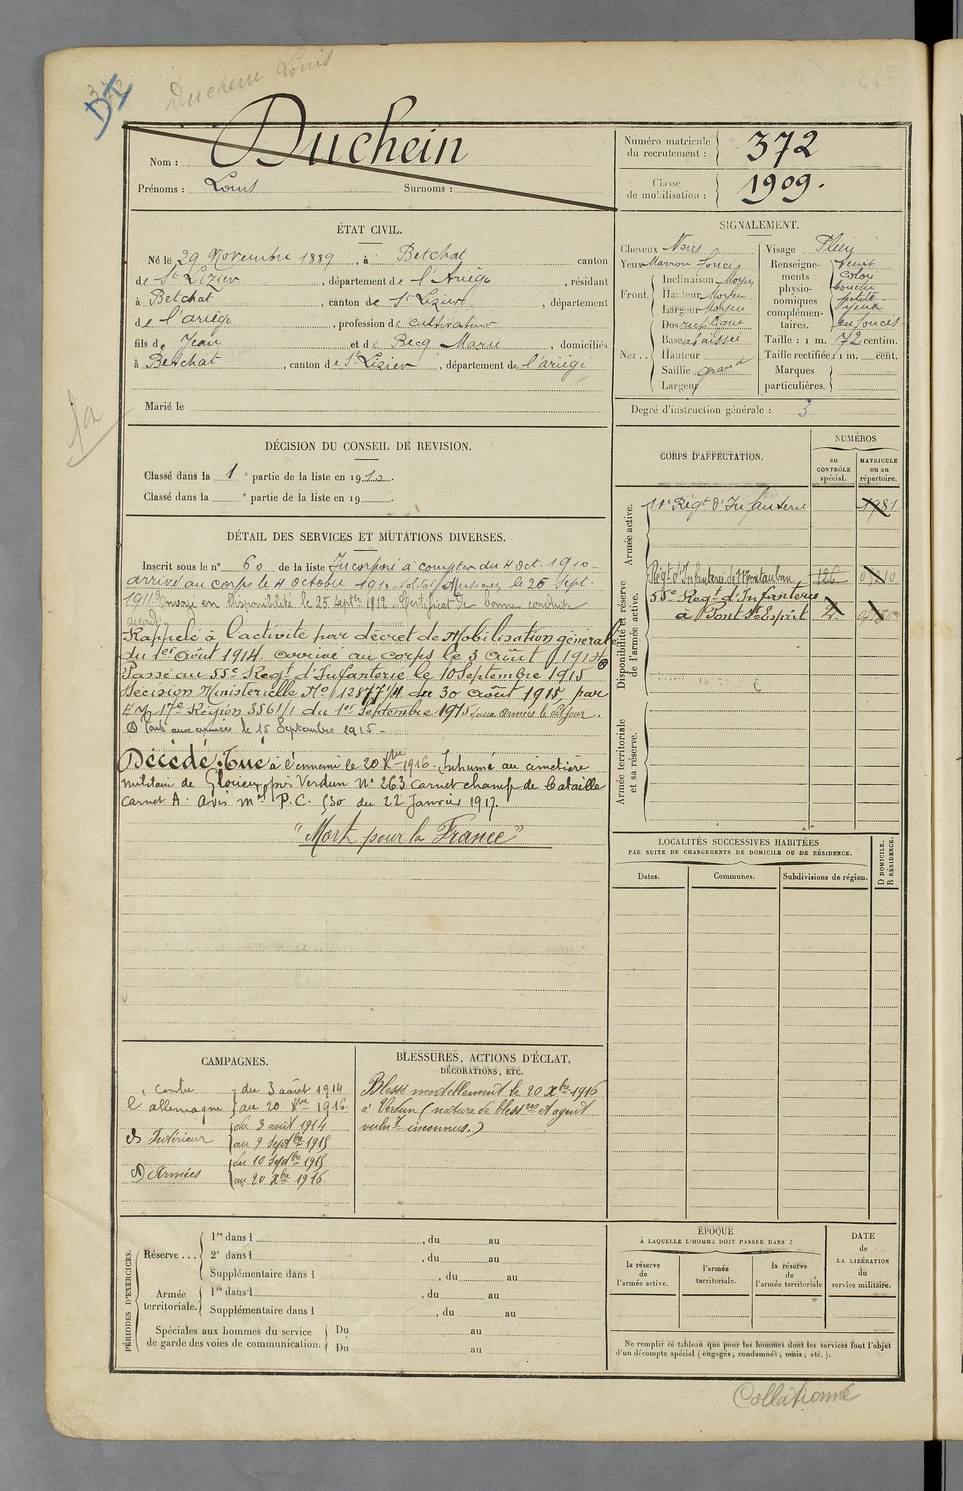 Duchein Louis
372
Nom : Duchein
Prénoms : Louis Surnoms :
Numéro matricule du recrutement : 372
Classe de mobilisation : 1909.
ÉTAT CIVIL.
Né le 29 Novembre 1889, à Betchat canton
de St Lizier, département de l'Ariège, résidant
à Betchat, canton de St Lizier, département
de l'ariège, profession de cultivateur
fils de Jean et de Becq Marie, domiciliés
à Betchat, canton de St Lizier, département de l'ariège
Marié le
SIGNALEMENT.
Cheveux Noirs
Yeux Marron foncé
Front. Inclinaison Moyen
Hauteur Moyen
Largeur Moyen
Nez .. Dos rectiligne
Base abaissée
Hauteur
Saillie grand
Largeur
Visage Plein
Renseignements physionomiques complémentaires.
teint
coloré
bouche
petite
yeux
enfoncés
Taille : 1 m. 72 centim.
Taille rectifiée : 1 m. cent.
Marques particulières.
Degré d'instruction générale : 3
DÉCISION DU CONSEIL DE REVISION.
Classé dans la 1e partie de la liste en 1910.
Classé dans la e partie de la liste en 19 .
DÉTAIL DES SERVICES ET MUTATIONS DIVERSES.
Inscrit sous le n° 60 de la liste Incorporé à compter du 4 Oct. 1910
arrivé au corps le 4 Octobre 1910 Soldat Musicien le 26 Sept.
1911 Envoyé en Disponibilité le 25 Septre 1912. Certificat de bonne conduite
accordé
Rappelé à l'activité par décret de Mobilisation générale
du 1er Août 1914. arrivé au corps le 3 Août 1914
Passé au 55e Regt d'Infanterie le 10 Septembre 1915
Décision Ministerielle No 12877 1/11 du 30 Août 1915, par
E.M. 17e Région 3561/1 du 1er Septembre 1915
Parti aux armées le 15 Septembre 1915.
Décédé. Tué à l'ennemi le 20 Xbre 1916. Inhumé au cimetière
militaire de Glorieux près Verdun N° 263 carnet champ de bataille
Carnet A. Avis Mel P.C. 530 du 22 Janvier 1917.
"Mort pour la France"
CORPS D'AFFECTATION.
NUMÉROS
au CONTRÔLE spécial.
MATRICULE ou au répertoire.
Armée active.
11e Régt d'Infanterie 1981
Disponibilité et réserve de l'armée active.
Régt d'Infanterie de Montauban 126
55e Regt d'Infanterie
à Pont St Esprit
Armée territoriale et sa réserve.
LOCALITÉS SUCCESSIVES HABITÉES
PAR SUITE DE CHANGEMENTS DE DOMICILE OU DE RÉSIDENCE.
Dates. Communes. Subdivisions de région.
D DOMICILE. R RÉSIDENCE.
CAMPAGNES.
contre l'allemagne du 3 août 1914
au 20 Xbre 1916
Intérieur du 3 août 1914
au 9 Septbre 1915
Armées du 10 Septbre 1915
au 20 Xbre 1916
BLESSURES, ACTIONS D'ÉCLAT,
DÉCORATIONS, ETC.
Blessé mortellement le 20 Xbre 1916
à Verdun (nature de blessres et agent
vulnt inconnus.)
PÉRIODES D'EXERCICES.
Réserve ... 1re dans l , du au
2e dans l , du au
Supplémentaire dans l , du au
Armée territoriale. 1re dans l , du au
Supplémentaire dans l , du au
Spéciales aux hommes du service de garde des voies de communication. Du au
Du au
ÉPOQUE
À LAQUELLE L'HOMME DOIT PASSER DANS :
la réserve de l'armée active.
l'armée territoriale.
la réserve de l'armée territoriale
DATE de LA LIBÉRATION du service militaire.
Ne remplir ce tableau que pour les hommes dont les services font l'objet
d'un décompte spécial (engagés, condamnés, omis, etc.).
Collationné